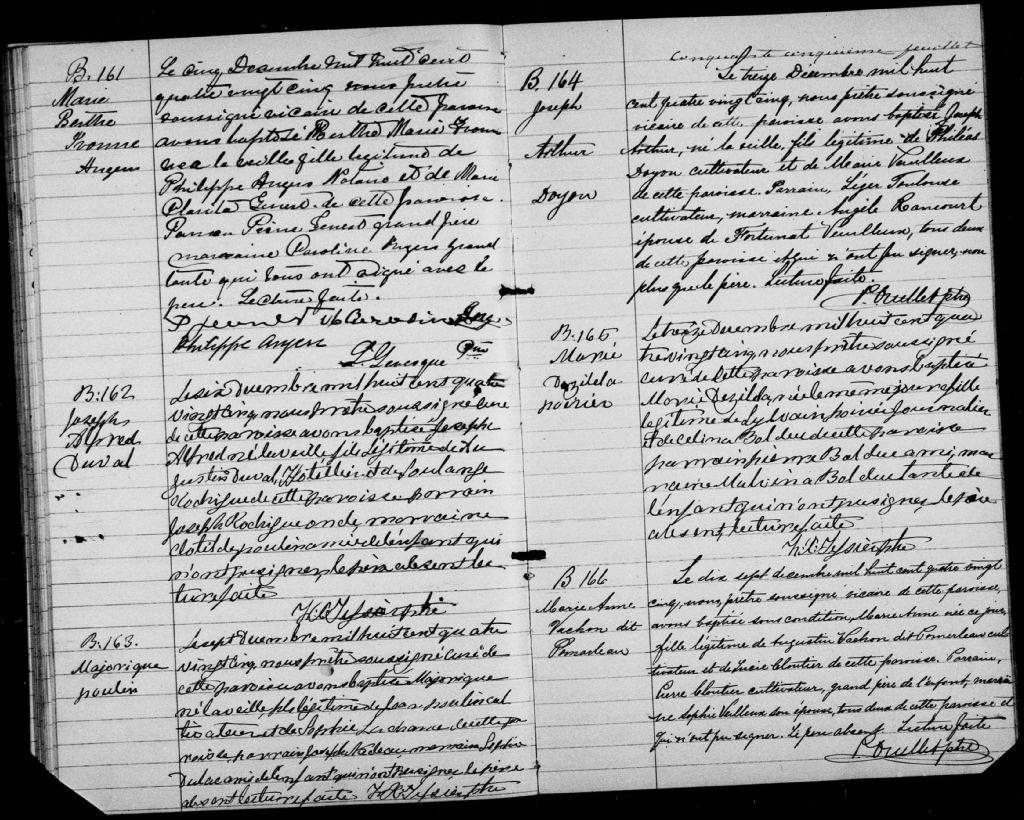 B. 161
Marie
Berthe
Yvonne
Angers
Le cinq Decembre mil huit cent
quatre vingt cinq nous prêtre
soussigné vicaire de cette paroisse
avons baptisé Berthe Marie Yvonne
née la veille fille legitime de
Philippe Angers Notaire et de Marie
de cette paroisse.
Parrain Pierre grand père
marraine Caroline Angers grand
tante qui tous ont signé avec le
père. Lecture faite.
Philippe Angers
L. Levesque Ptre
B. 162
Joseph
Alfred
Duval
Le six Decembre mil huit cent quatre
vingt cinq, nous prêtre soussigné curé
de cette paroisse avons baptisé Joseph
Alfred né la veille fils Légitime de
Justin Duval, Hotellier et de Soulange
Rodrigue de cette paroisse parrain
Joseph Rodrigue oncle, marraine
Clotilde poulin amie de l'enfant qui
n'ont pu signer, le père absent lec
ture faite
B. 163.
Majorique
poulin
Le sept Decembre mil huit cent quatre
vingt cinq nous prêtre soussigné curé de
cette paroisse avons baptisé Majorique
né la veille, fils légitime de Jean poulin cul
tivateur et de Sophie Lachance de cette pa
roisse parrain Joseph Nadeau marraine Sophie
Dulac amis de l'enfant qui n'ont pu signer le père
absent lecture faite
cinquante cinquième feuillet
B. 164
Joseph
Arthur
Doyon
Le treize Décembre mil huit
cent quatre vingt cinq, nous prêtre soussigné
vicaire de cette paroisse avons baptisé Joseph
Arthur, né la veille, fils légitime de Philéas
Doyon cultivateur et de Marie Veilleux
de cette paroisse. Parrain, Léger Toulouse
cultivateur, marraine Angèle Rancourt
épouse de Fortunat Veilleux, tous deux
de cette paroisse et qui n'ont pu signer non
plus que le père. Lecture faite.
P. Ouellet ptre
B. 165
Marie
Dezilda
poirier
Le treize Decembre mil huit cent qua
tre vingt cinq, nous prêtre soussigné
curé de cette paroisse avons baptisé
Marie Dezilda, née le meme jour fille
legitime de Sylvain poirier Journalier
et de Celina Bolduc de cette paroisse
parrain pierre Bolduc ami, mar
raine Malvina Bolduc tante de
l'enfant qui n'ont pu signer, le père
absent, lecture faite
B 166
Marie Anne
Vachon dit
Pomerleau
Le dix sept decembre mil huit cent quatre vingt
cinq, nous, prêtre soussigné vicaire de cette paroisse,
avons baptisé sous condition, Marie Anne née ce jour,
fille légitime de Augustin Vachon dit Pomerleau cul
tivateur et de Lucie Cloutier de cette paroisse. Parrain,
Pierre Cloutier cultivateur, grand père de l'enfant, marrai
ne Sophie Veilleux son épouse, tous deux de cette paroisse et
qui n'ont pu signer. Le père absent. Lecture faite
P. Ouellet ptre